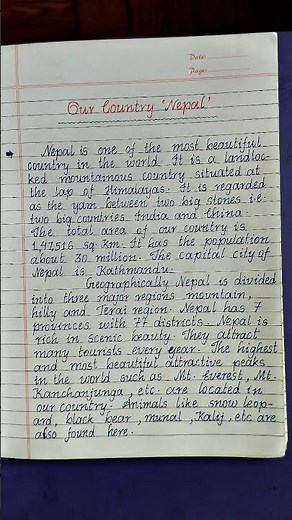 Date:
Page:
Our Country 'Nepal'
Nepal is one of the most beautiful
country in the world. It is a landloc-
ked mountainous country situated at
the lap of Himalayas. It is regarded
as the yam between two big stones i.e:
two big countries India and China.
The total area of our country is
1,47,516 sq. km. It has the population
about 30 million. The capital city of
Nepal is Kathmandu.
Geographically Nepal is divided
into three major regions mountain,
hilly and Terai region. Nepal has 7
provinces with 77 districts. Nepal is
rich in scenic beauty. They attract
many tourists every year. The highest
and most beautiful attractive peaks
in the world such as Mt. Everest, Mt.
Kanchanjunga, etc. are located in
our country. Animals like snow leop-
ard, black bear, munal, Kalij, etc are
also found here.